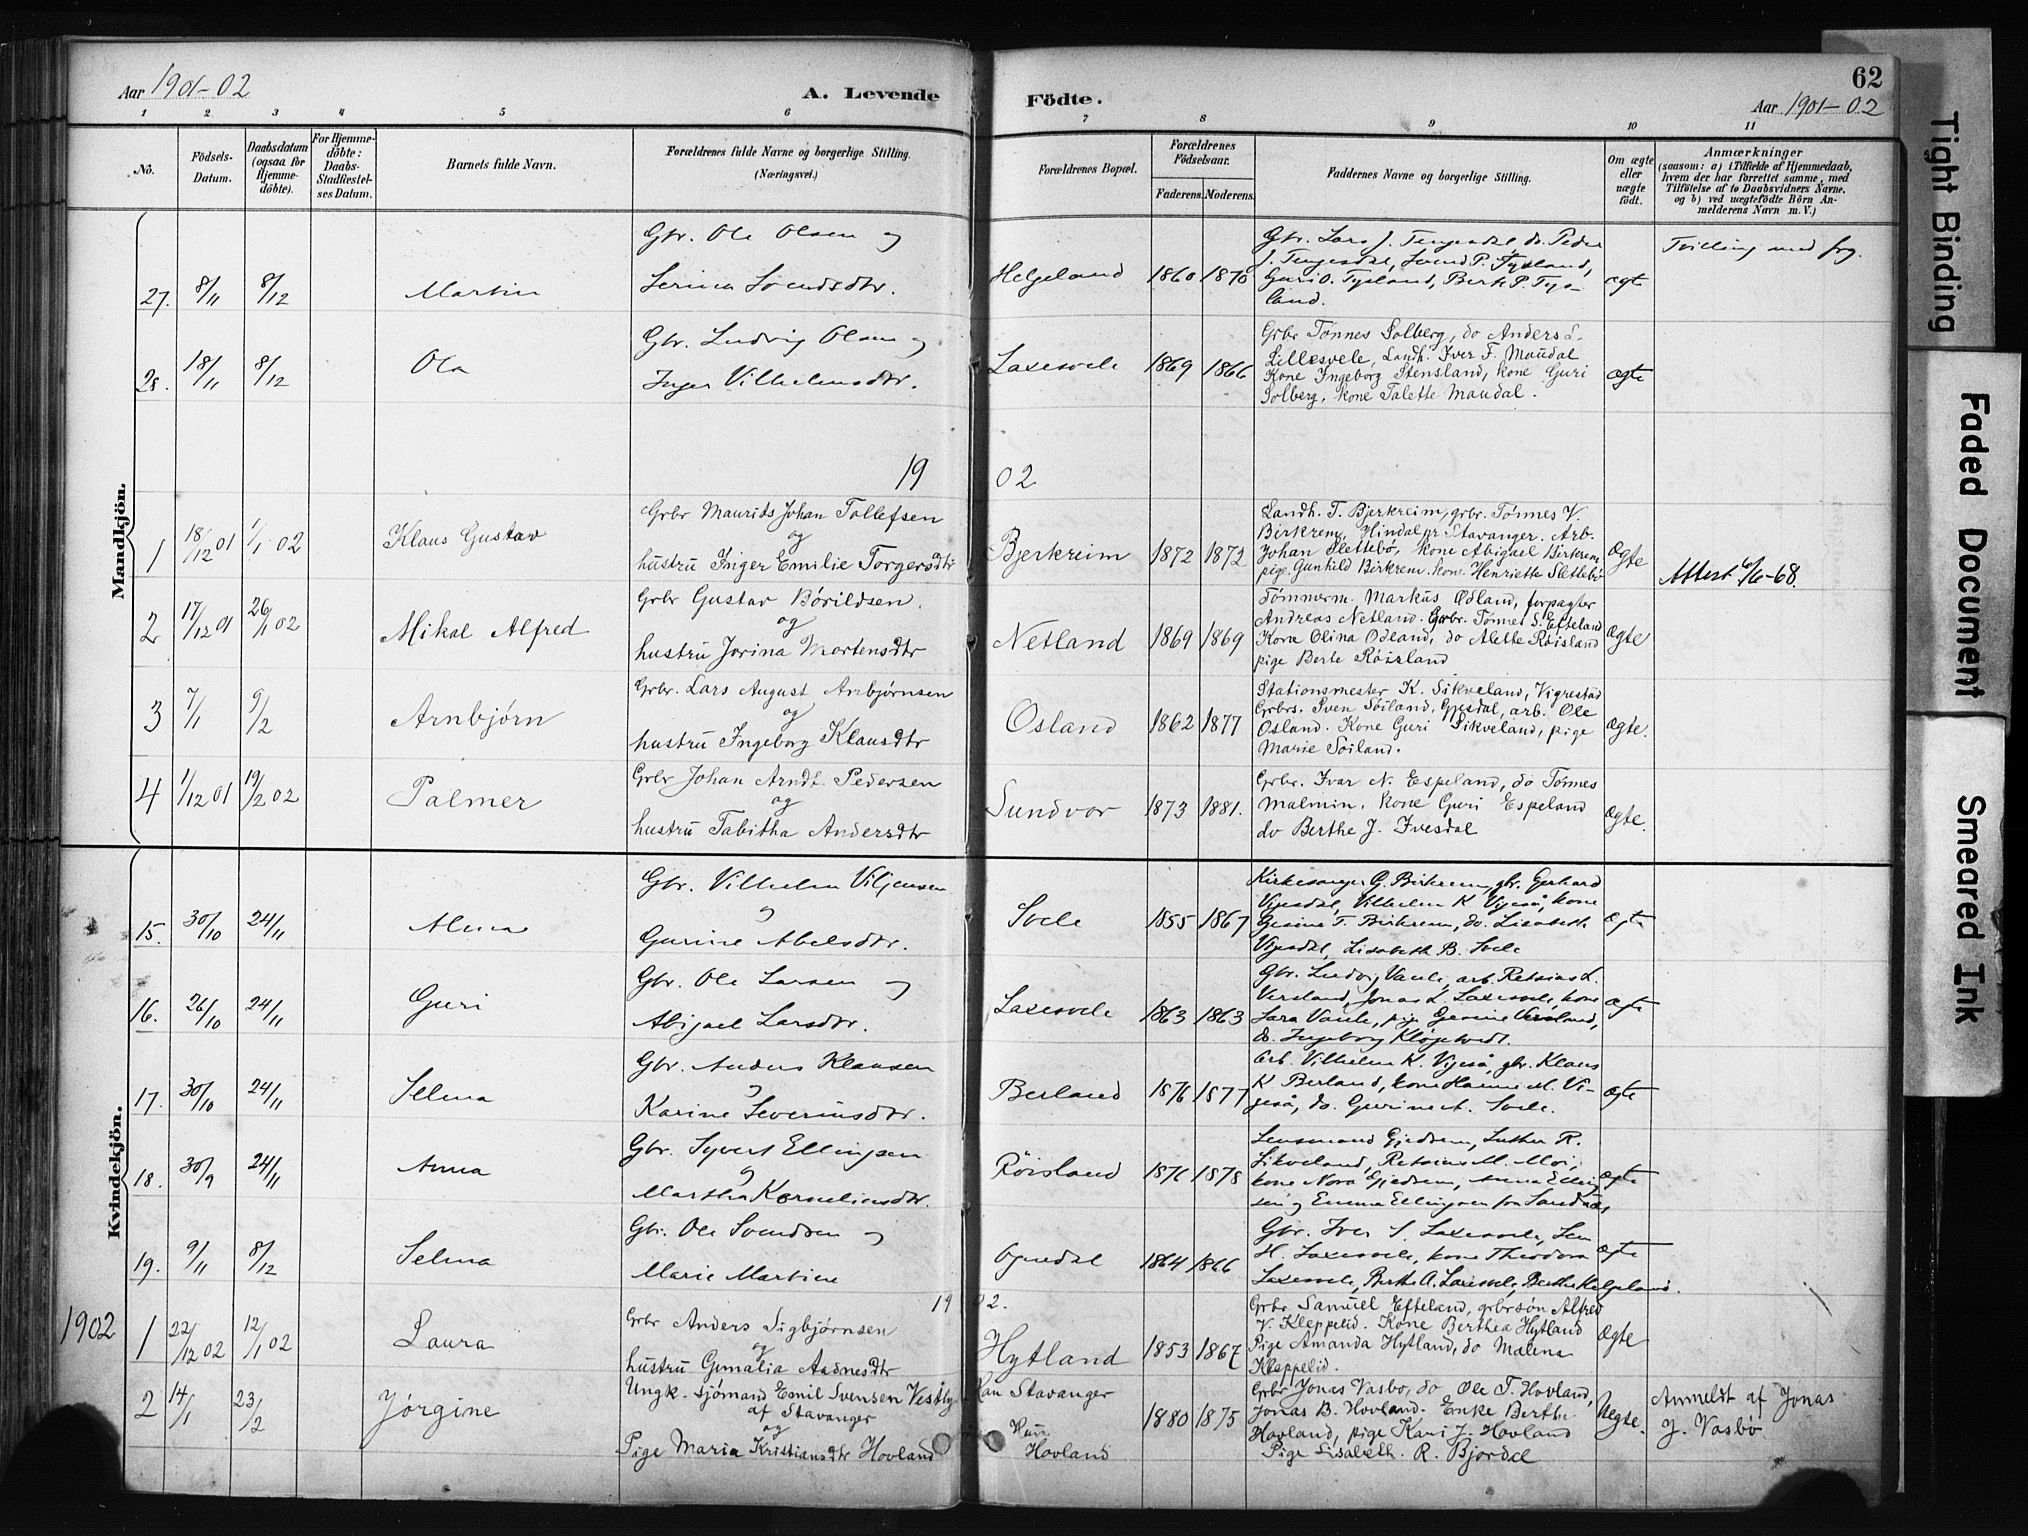 Aar 1901-02
A. Levende
Födte.
62
Aar 1901-02
1 2 3 4 5 6 7 8 9 10 11
No.
Födsels-
Datum.
Daabsdatum
(ogsaa for
Hjemme-
döbte).
For Hjemme-
döbte:
Daabs-
Stadfæstel-
ses Datum.
Barnets fulde Navn.
Forældrenes fulde Navne og borgerlige Stilling.
(Næringsvei.)
Forældrenes Bopæl.
Forældrenes
Födselsaar.
Faderens. Moderens.
Faddernes Navne og borgerlige Stilling.
Om ægte
eller
uægte
födt.
Anmærkninger
(saasom: a) i Tilfælde af Hjemmedaab,
hvem der har forrettet samme, med
Tilföielse af to Daabsvidners Navne,
og b) ved uægtefödte Börn An-
melderens Navn m. V.)
Mandkjön.
27. 8/11 8/12 Martin
Gbr. Ole Olsen og
Serina Svendsdtr.
Helgeland 1860 1870
Gbr. Lars J. Tengesdal, do. Peder
J. Tengesdal, Svend P. Tysland,
Guri O. Tysland, Berte P. Tys-
land.
ægte
Tvilling med
28. 18/11 8/12 Ola
Gbr. Ludvig Olsen og
Inger Vilhelmsdtr.
Laxesvele 1869 1866
Grbr Tønnes Solberg, do Anders S.
Lillesvele, Landh. Iver F. Maudal
Kone Ingeborg Stensland, kone Guri
Solberg, kone Talette Maudal.
ægte
19 02
1 18/12 01 1/1 02 Klaus Gustav
Grbr Maurits Johan Tollefsen
og
hustru Inger Emilie Torgersdtr
Bjerkreim 1872 1872
Landh. T. Bjerkreim, grbr. Tønnes V.
Birkrem, Hindal pr Stavanger. Arb.
Johan Slettebø, kone Abigael Birkrem
pige Gunhild Birkrem. kone Henriette Slettebø
Ægte
Attest 6/6-68.
2 17/12 01 26/1 02 Mikal Alfred
Grbr Gustav Børildsen.
og
hustru Jorina Mortensdtr
Netland 1869 1869
Tømmerm. Markus Ødland, forpagter
Andreas Netland. Grbr. Tønnes S. Efteland
Kone Olina Ødland, do Alette Røisland
pige Berte Røisland
Ægte
3 7/1 9/2 Arnbjørn
Grbr. Lars August Arnbjørnsen
og
hustru Ingeborg Klausdtr
Osland 1862 1877
Stationsmester K. Sikveland, Vigrestad
Grbrs. Sven Søiland, Gjesdal, arb. Ole
Osland. Kone Guri Sikveland, pige
Marie Søiland.
Ægte.
4 1/12 01 19/2 02 Palmer
Grbr Johan Arndt Pedersen
og
hustru Tabitha Andersdtr
Sundvor 1873 1881.
Grbr. Ivar N. Espeland, do Tønnes
Malmin. Kone Guri Espeland
do Berthe J. Ivesdal
Ægte.
Kvindekjön.
15. 30/10 24/11 Alma
Gbr. Vilhelm Viljensen
og
Gurine Abelsdtr.
Svele 1855 1867
Kirkesanger G. Birkrem, gbr. Gerhard
Vigesdal, Vilhelm K. Vigeså, kone
Gesine T. Birkrem, do. Lisabeth
Vigesdal, Lisabeth B. Svele
ægte
16. 26/10 24/11 Guri
Gbr. Ole Larsen og
Abigael Larsdtr.
Laxesvele 1863 1863
Gbr. Ludvig Vaule, arb. Retsius L.
Versland, Jonas L. Laxesvele, kone
Sara Vaule, pige Gesine Versland,
do. Ingeborg Kløgetvedt.
ægte
17. 30/10 24/11 Selma
Gbr. Anders Klausen
og
Karine Severinsdtr.
Berland 1876 1877
Arb. Vilhelm K. Vigeså, gbr. Klaus
K. Berland, kone Hanne M. Vi-
geså, do. Gurine A. Svele.
ægte
18. 30/9 24/11 Anna
Gbr. Syvert Ellingsen
og
Martha Korneliusdtr.
Røisland 1876 1878
Lensmand Gjedrem, Luther R.
Sikveland, Retsius M. Moi,
kone Nora Gjedrem, Anna Elling
sen og Emma Ellingsen fra Sandnæs
ægte
19. 9/11 8/12 Selma
Gbr. Ole Svendsen og
Marie Martine
Ognedal 1864 1866
Gbr. Iver S. Laxesvele, Sem
H. Laxesvele, kone Theodora
Laxesvele, Berthe A. Laxesvele, Berthe Helgeland.
ægte
1902 19 02.
1 22/12 02 12/1 02 Laura
Grbr Anders Sigbjørnsen
og
hustru Gimalia Aadnesdtr
Hytland 1853 1867
Grbr Samuel Efteland, grbrsøn Alfred
V. Kleppelid. Kone Berthea Hytland
Pige Amanda Hytland, do Malena
Kleppelid.
Ægte
2 14/1 23/2 Jørgine
Ungk. sjømand Emil Svensen Vestly
af Stavanger
og
Pige Maria Kristiansdtr Hovland
Han Stavanger
Hun
Hovland
1880 1875
Grbr Jonas Vasbø, do Ole T. Hovland,
Jonas B. Hovland. Enke Berthe
Hovland, pige Kari J. Hovland
Pige Lisabeth R. Bjordal
Uegte.
Anmeldt af Jonas
J. Vasbø
Tight Binding
Faded Document
Smeared Ink